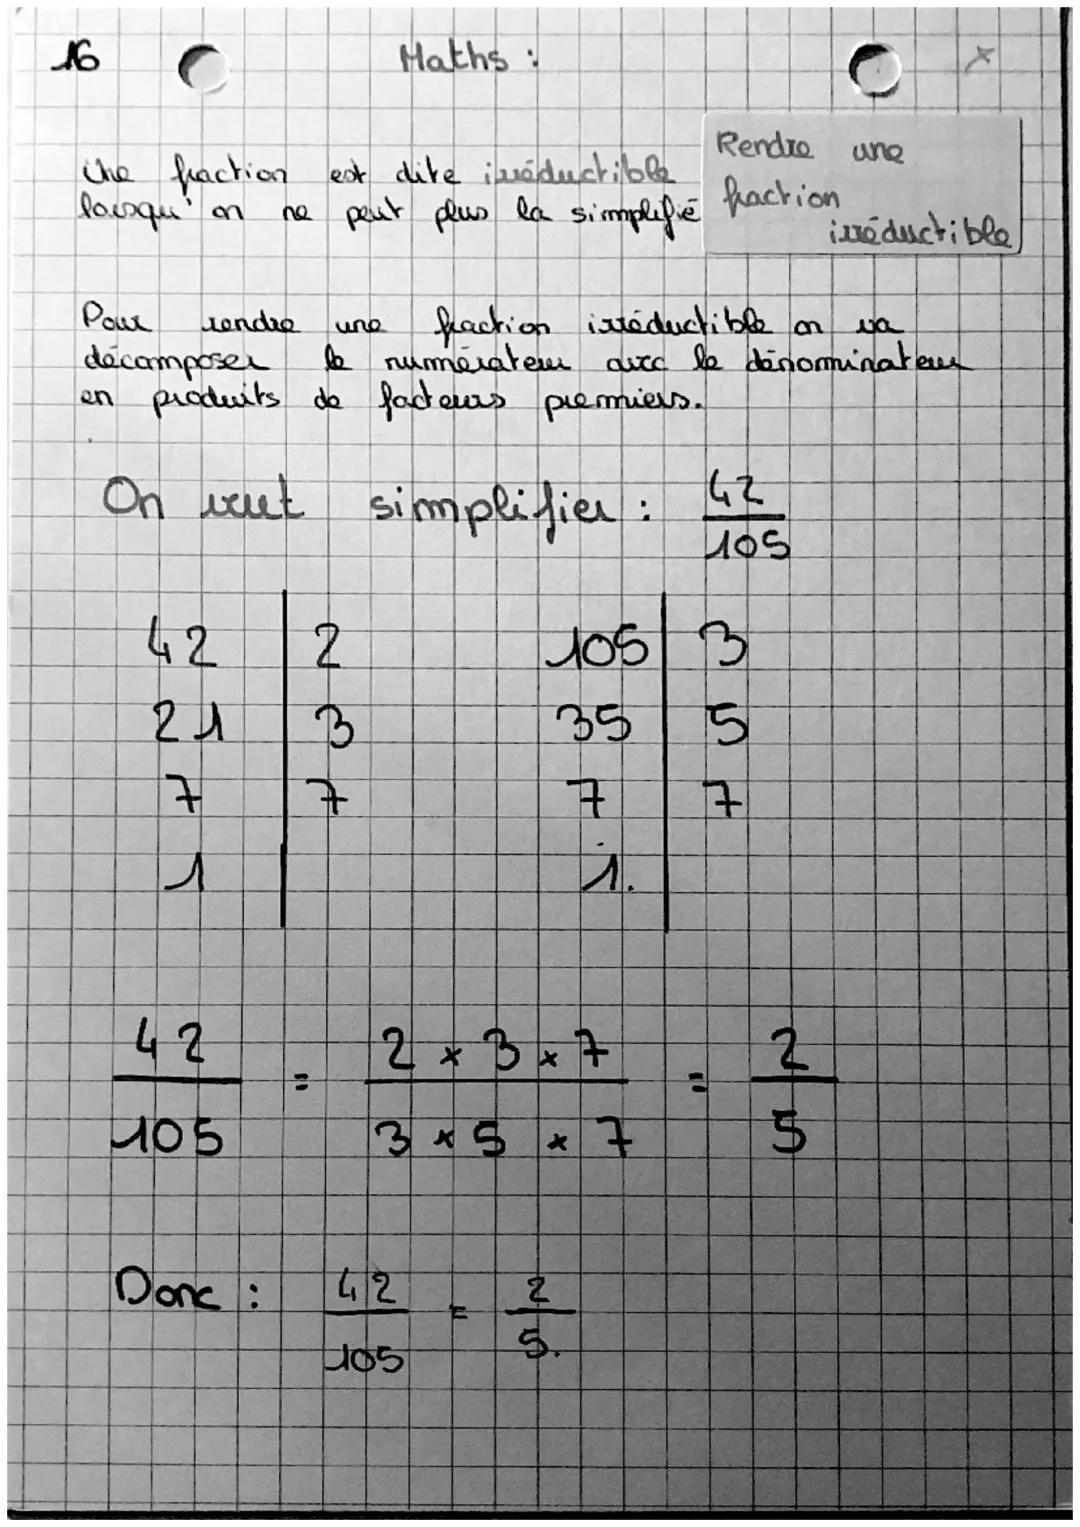 16
Maths :
Rendre une
fraction
irréductible
Une fraction est dite irréductible
lorsqu'on ne peut plus la simplifié
Pour rendre une fraction irréductible on va
décomposer le numérateur avec le dénominateur
en produits de facteurs premiers.
On veut simplifier : 42/105
42 | 2 105 | 3
21 | 3 35 | 5
7 | 7 7 | 7
1 | 1. |
42/105 = 2 × 3 × 7 / 3 × 5 × 7 = 2/5
Donc : 42/105 = 2/5.